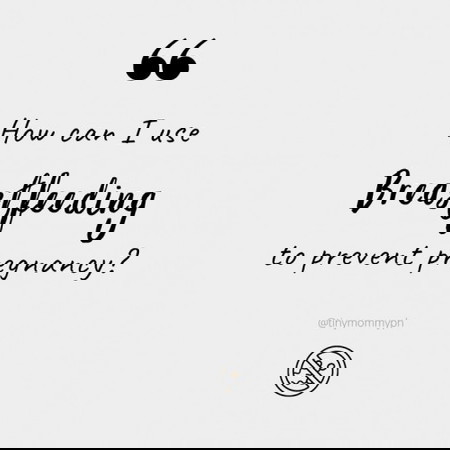 “
How can I use
Breastfeeding
to prevent pregnancy?
@tinymommyph